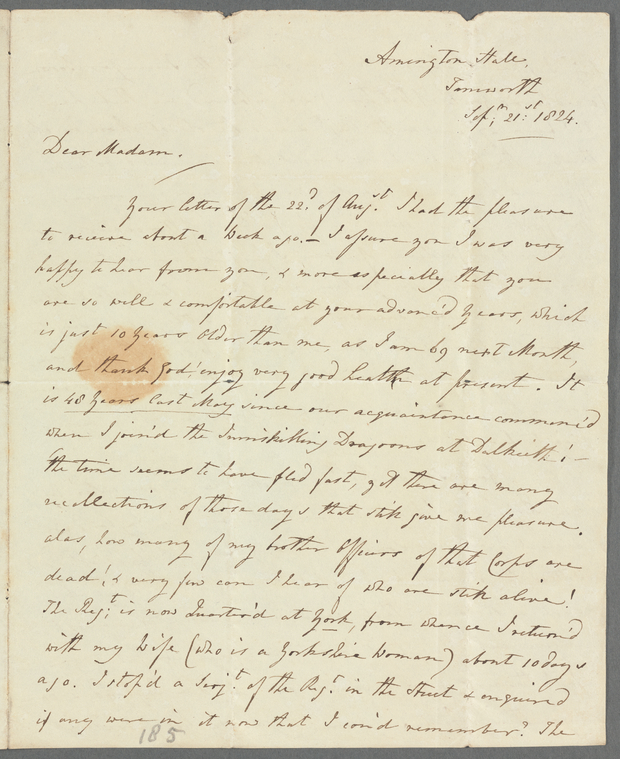 Amington Hall,
Tamworth
Sep.r 21:st 1824.
Dear Madam.
Your letter of the 22.d of Aug.st I had the pleasure
to receive about a Week ago. – I assure you I was very
happy to hear from you, & more especially that you
are so well & comfortable at your advanc'd Years, which
is just 10 Years older than me, as I am 69 next Month,
and thank God! enjoy very good health at present. It
is 48 Years last May since our acquaintance commenc'd
when I join'd the Inniskilling Dragoons at Dalkeith! –
the time seems to have fled fast, yet there are many
recollections of those days that still give me pleasure.
alas, how many of my brother Officers of that Corps are
dead! & very few can I hear of who are still alive!
The Reg.t is now Quarter'd at York, from whence I return'd
with my Wife (who is a Yorkshire Woman) about 10 days
ago. I stop'd a Serj.t of the Reg.t in the Street & enquired
if any were in it now that I cou'd remember? The
185